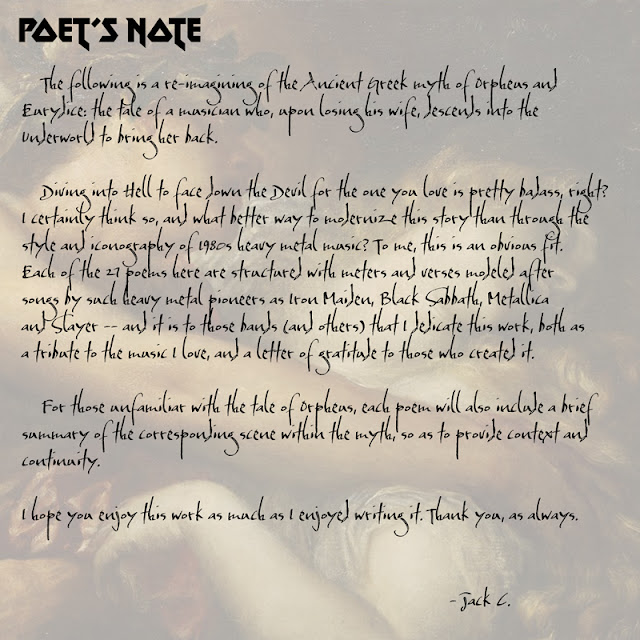 POET'S NOTE
The following is a re-imagining of the Ancient Greek myth of Orpheus and
Eurydice: the tale of a musician who, upon losing his wife, descends into the
Underworld to bring her back.
Diving into Hell to face down the Devil for the one you love is pretty badass, right?
I certainly think so, and what better way to modernize this story than through the
style and iconography of 1980s heavy metal music? To me, this is an obvious fit.
Each of the 27 poems here are structured with meters and verses modeled after
songs by such heavy metal pioneers as Iron Maiden, Black Sabbath, Metallica
and Slayer -- and it is to those bands (and others) that I dedicate this work, both as
a tribute to the music I love, and a letter of gratitude to those who created it.
For those unfamiliar with the tale of Orpheus, each poem will also include a brief
summary of the corresponding scene within the myth, so as to provide context and
continuity.
I hope you enjoy this work as much as I enjoyed writing it. Thank you, as always.
- Jack C.